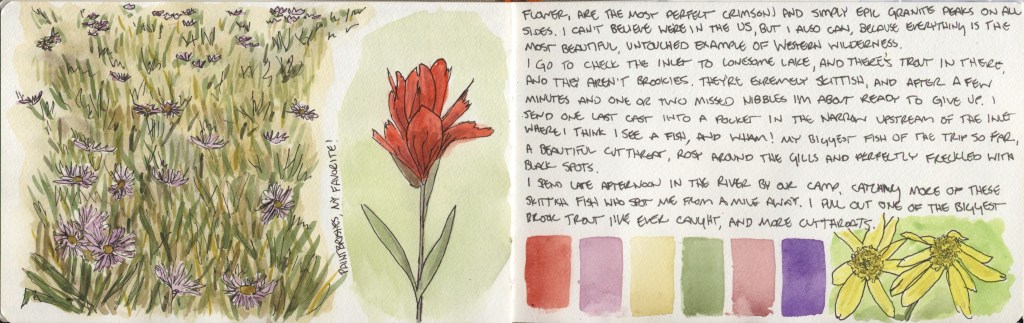 PAINTBRUSHES, MY FAVORITE!
FLOWER, ARE THE MOST PERFECT CRIMSON) AND SIMPLY EPIC GRANITE PEAKS ON ALL
SIDES. I CAN'T BELIEVE WE'RE IN THE US, BUT I ALSO CAN, BECAUSE EVERYTHING IS THE
MOST BEAUTIFUL, UNTOUCHED EXAMPLE OF WESTERN WILDERNESS.
I GO TO CHECK THE INLET TO LONESOME LAKE, AND THERE'S TROUT IN THERE,
AND THEY AREN'T BROOKIES. THEY'RE EXREMELY SKITTISH, AND AFTER A FEW
MINUTES AND ONE OR TWO MISSED NIBBLES I'M ABOUT READY TO GIVE UP. I
SEND ONE LAST CAST INTO A POCKET IN THE NARROW UPSTREAM OF THE INLET
WHERE I THINK I SEE A FISH, AND WHAM! MY BIGGEST FISH OF THE TRIP SO FAR,
A BEAUTIFUL CUTTHROAT, ROSY AROUND THE GILLS AND PERFECTLY FRECKLED WITH
BLACK SPOTS.
I SPEND LATE AFTERNOON IN THE RIVER BY OUR CAMP, CATCHING MORE OF THESE
SKITTISH FISH WHO SPOT ME FROM A MILE AWAY. I PULL OUT ONE OF THE BIGGEST
BROOK TROUT I'VE EVER CAUGHT, AND MORE CUTTHROATS.